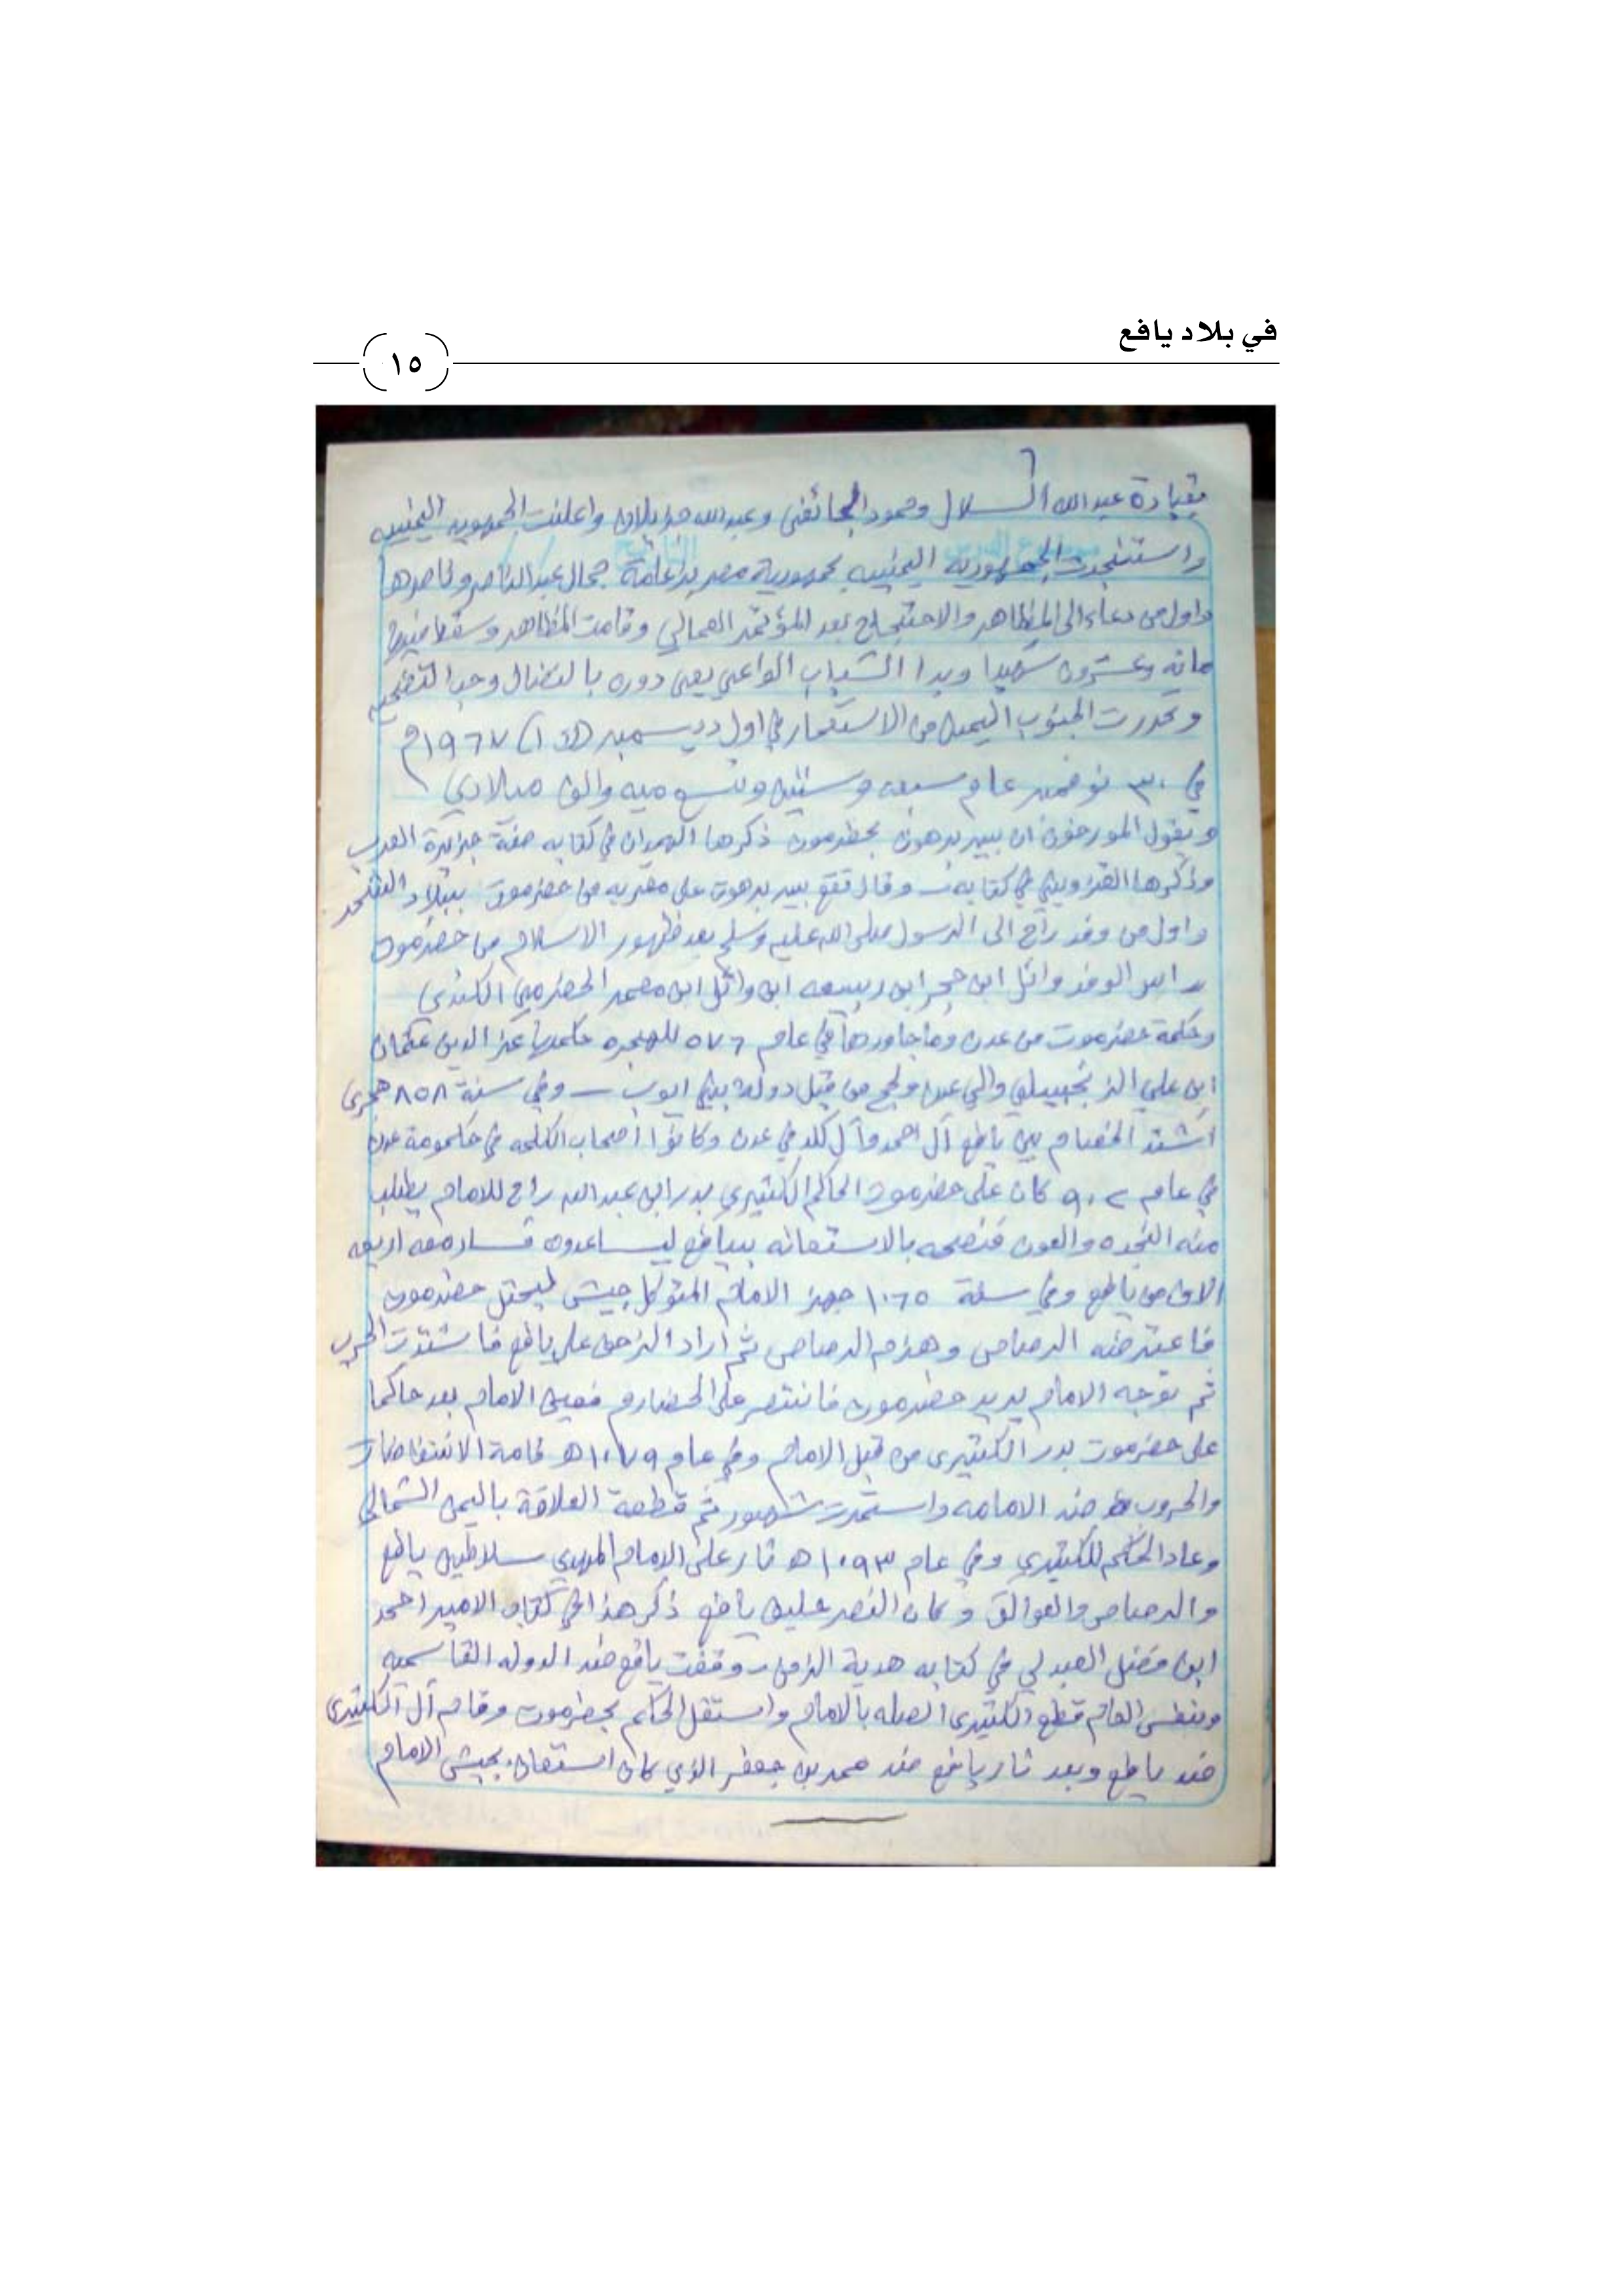 في بلاد يافع
١٥
بقيادة عبدالله السلال وحمود الجائفي وعبدالله جزيلان واعلنت الجمهوريه اليمنيه
واستنجدت الجمهوريه اليمنيه بجمهورية مصر بزعامة جمال عبدالناصر وناصرها
واول من دعاء الى المظاهر والاحتجاج بعد المؤتمر العمالي وقامت المظاهر وسقط فيها
مائه وعشرون شهيدا وبدا الشباب الواعي يعي دوره بالنضال وحب التضحيه
وتحررت الجنوب اليمنى من الاستعمار في اول ديسمبر ١٩٦٧م
في ٣٠ نوفمبر عام سبعه وستين وتسع ميه والف ميلادي
ويقول المورخون ان بيير برهوت بحظرموت ذكرها الهمدان في كتابه صفة جزيرة العرب
وذكرها القزويني في كتابه وقال تقع بيير برهوت على مقربه من حضرموت ببلاد الشحر
واول من وفد راح الى الرسول صلى الله عليه وسلم بعد ظهور الاسلام من حضرموت
راس الوفد وائل ابن حجر ابن ربيعه ابن وائل ابن معمر الحضرمي الكندي
وحكمة حضرموت من عدن وما جاورها في عام ٥٧٦ للهجره حكمها عز الدين عثمان
ابن علي الزنجبيلي والي عدن ولحج من قبل دولة بني ايوب – وفي سنة ٨٥٨ هجري
اشتد الخصام بين يافع آل احمد وآل كلد في عدن وكانوا اصحاب الكلمه في حكومة عدن
في عام ٩٠٢ كان على حضرموت الحاكم الكثيري بدر ابن عبدالله راح للامام يطلب
منه النجده والعون فنصحه بالاستعانه بيافع ليساعدوه فسار معه اربعه
الاف من يافع وفي سنة ١٠٦٥ جهز الامام المتوكل جيش ليحتل حضرموت
فاعترضه الرصاص وهزم الرصاص ثم أراد الزحف على يافع فاشتدت الحرب
ثم توجه الامام يريد حضرموت فانتصر على الحضارم فعين الامام بعد حاكما
على حضرموت بدر الكثيري من قبل الامام وفي عام ١٠٧٩ه قامة الانتفاضات
والحروب ضد الامامه واستمرت شهور ثم قطعة العلاقة باليمن الشمالي
وعاد الحكم للكثيري وفي عام ١٠٩٣ ه ثار على الامام المهدي سلاطين يافع
والرصاص والعوالق وكان النصر عليه يافع ذكر هذا في كتاب الامير احمد
ابن فضل العبدلي في كتابه هدية الزمن – وقفت يافع ضد الدوله القاسميه
وبنفس العام قطع الكثيرى الصله بالامام واستقل الحكم بحضرموت وقام آل الكثيرى
ضد يافع وبعد ثار يافع ضد محمد بن جعفر الذي كان استعان بجيش الامام